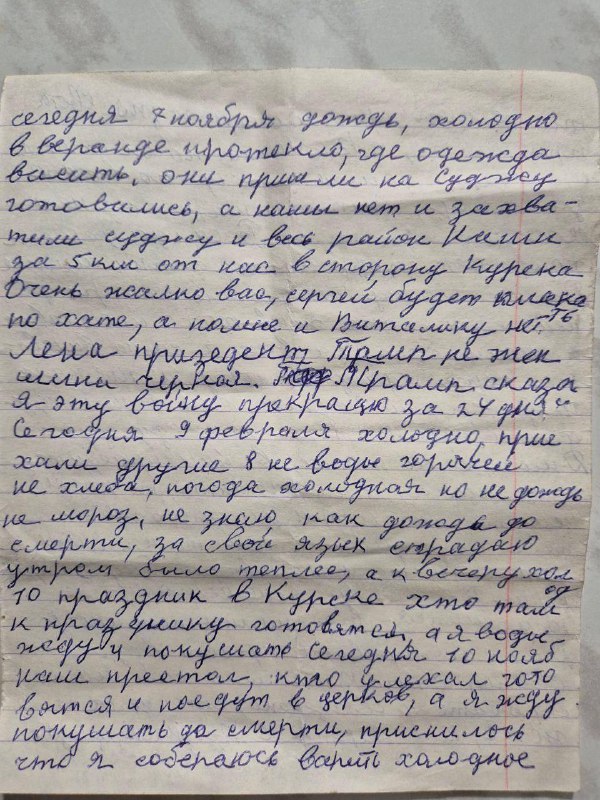 сегодня 7 ноября дождь, холодно
в веранде протекло, где одежда
васить, они пришли на Суджу
готовились, а наши нет и захва-
тили суджу и весь район
за 5 км от нас в сторону Курска
Очень жалко вас, сергей будет плака
ть
по хате, а по мне и Виталику нет.
Лена президент Трамп не жен
шина черная. Трамп сказа
я эту войну прекращю за 24 дня"
Сегодня 9 февраля холодно, прие
хали другие 8 не воды горячей
не хлеба, погода холодная но не дождь
не мороз, не знаю как дожда до
смерти, за свой язык страдаю
утром было теплее, а к вечеру хол
од
10 праздник в Курске хто там
к празднику готовятся, а я воды
жду и покушать Сегодня 10 нояб
наш престол, кто уехал гото
вятся и поедут в церков, а я жду
покушать до смерти, приснилось
что я собераюсь варить холодное